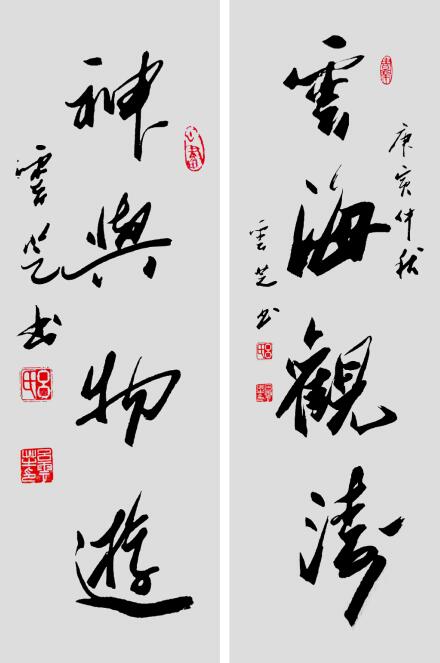 庚寅仲秋
雲海觀濤
雲芝书
神與物遊
雲芝书